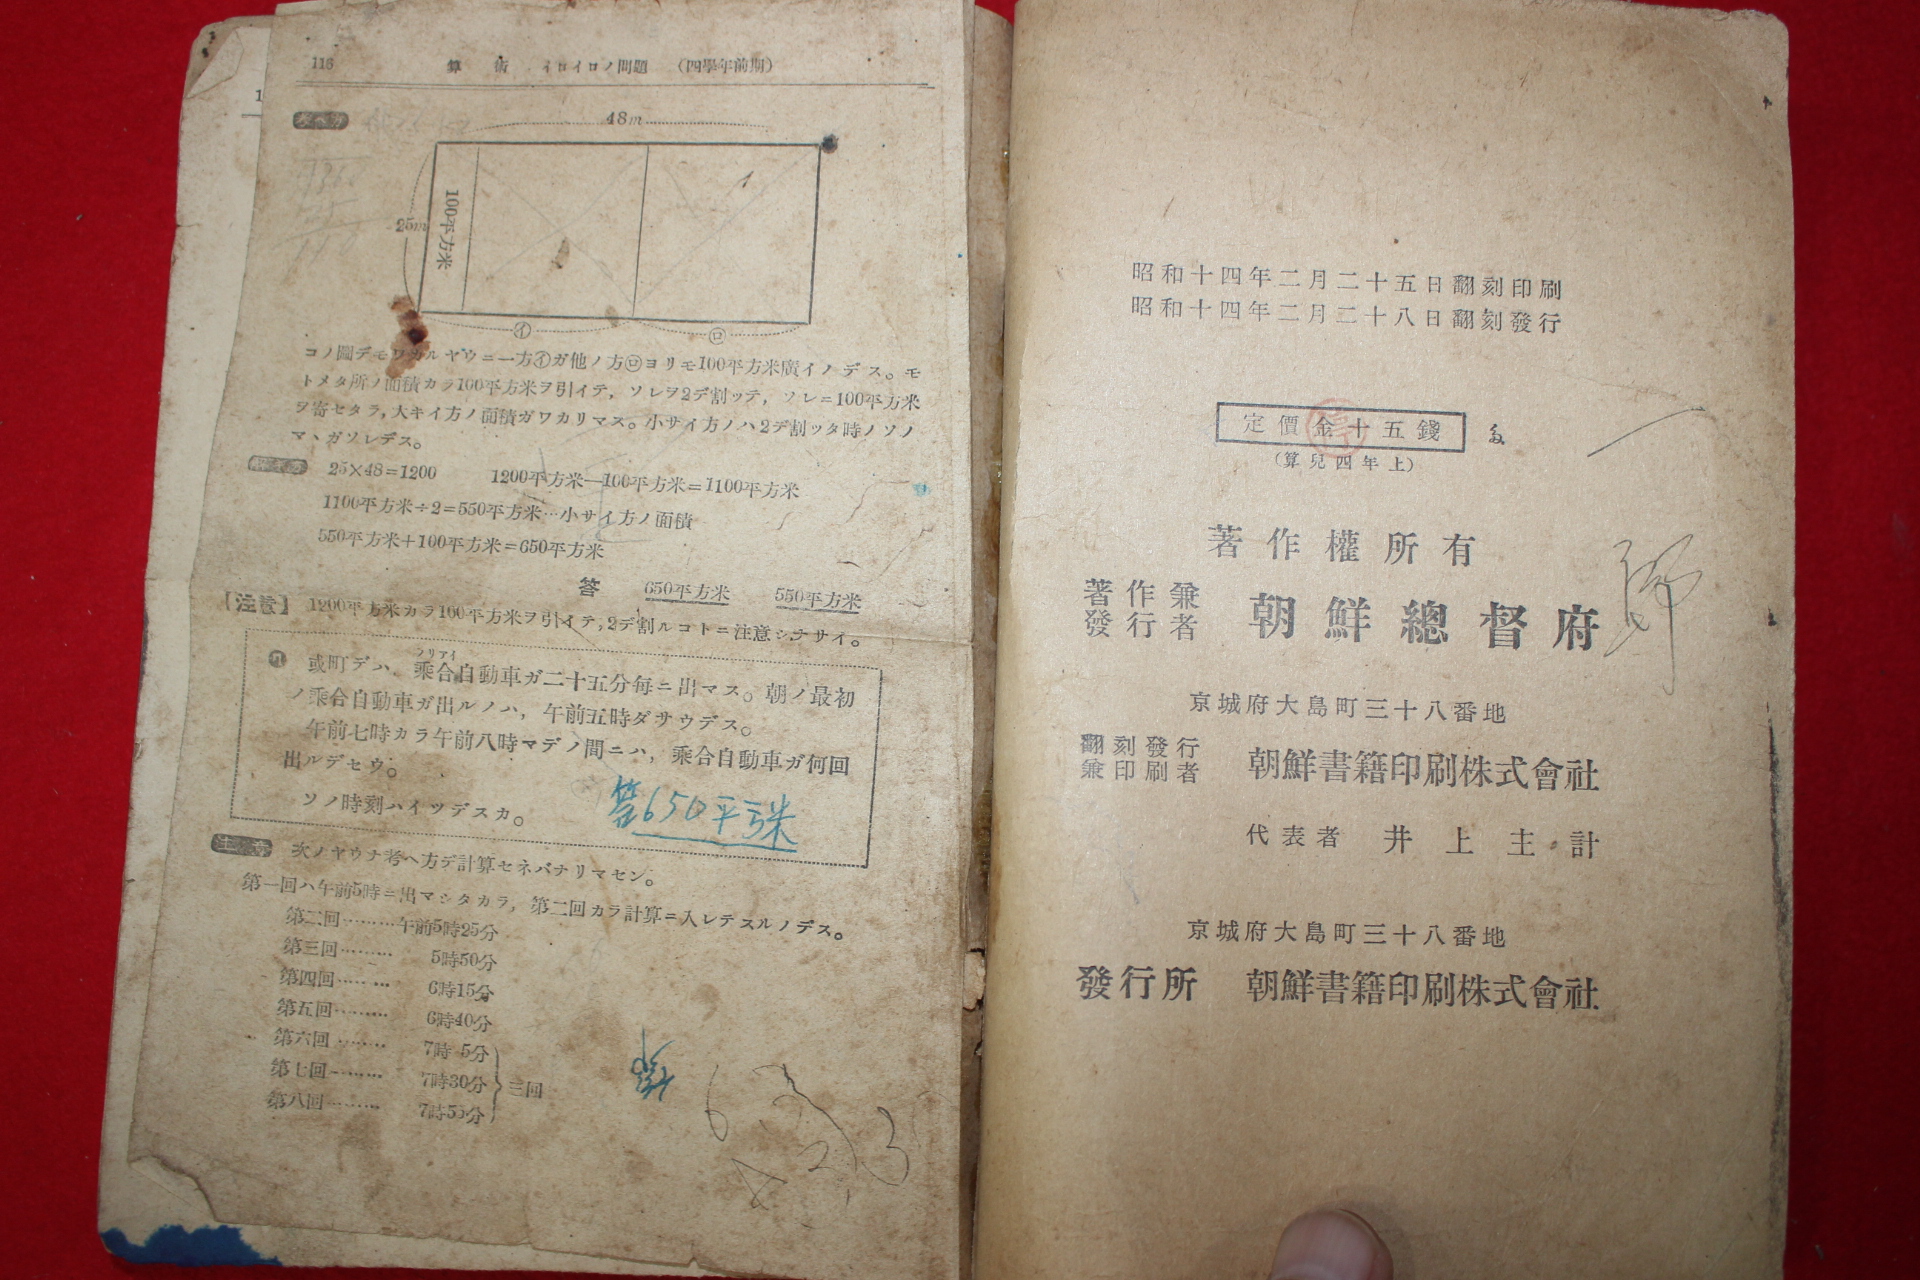 116 算術 イロイロノ問題 (四學年前期)
48m
25m
100平方米
イ
ロ
コノ圖デモワカルヤウニ一方イガ他ノ方ロヨリモ100平方米廣イノデス。モ
トメタ所ノ面積カラ100平方米ヲ引イテ, ソレヲ2デ割ッテ, ソレニ100平方米
ヲ寄セタラ, 大キイ方ノ面積ガワカリマス。小サイ方ノハ2デ割ッタ時ノソノ
マヽガソレデス。
25×48=1200 1200平方米—100平方米=1100平方米
1100平方米÷2=550平方米…小サイ方ノ面積
550平方米+100平方米=650平方米
答 650平方米 550平方米
【注意】 1200平方米カラ100平方米ヲ引イテ, 2デ割ルコトニ注意シナサイ。
ノリアイ
或町デハ、乘合自動車ガ二十五分每ニ出マス。朝ノ最初
ノ乘合自動車ガ出ルノハ, 午前五時ダサウデス。
午前七時カラ午前八時マデノ間ニハ, 乘合自動車ガ何回
出ルデセウ。
ソノ時刻ハイツデスカ。
答650平方米
次ノヤウナ考ヘ方デ計算セネバナリマセン。
第一回ハ午前5時ニ出マシタカラ, 第二回カラ計算ニ入レテスルノデス。
第二回………午前5時25分
第三回……… 5時50分
第四回……… 6時15分
第五回……… 6時40分
第六回……… 7時5分
第七回……… 7時30分
三回
第八回……… 7時55分
6
2
3
昭和十四年二月二十五日翻刻印刷
昭和十四年二月二十八日翻刻發行
定價金十五錢
(算兒四年上)
著作權所有
著作兼
發行者 朝鮮總督府
京城府大島町三十八番地
翻刻發行
兼印刷者 朝鮮書籍印刷株式會社
代表者 井上主計
京城府大島町三十八番地
發行所 朝鮮書籍印刷株式會社